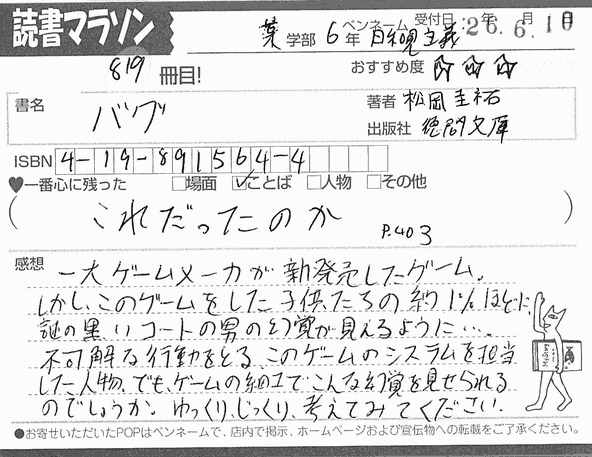 読書マラソン
葉 学部 6年 ペンネーム 自和見主義 受付日: 年 月 日 26.6.10
819 冊目!
おすすめ度 ☆ ☆ ☆
書名 バグ
著者 松岡圭祐
出版社 徳間文庫
ISBN 4-19-891564-4
♥一番心に残った □場面 ☑ことば □人物 □その他
(これだったのか P.403)
感想 一大ゲームメーカが新発売したゲーム。
しかし、このゲームをした子供たちの約1%ほどに、
謎の黒いコートの男の幻覚が見えるように…。
不可解な行動をとる、このゲームのシステムを担当
した人物、でも、ゲームの細工で、こんな幻覚を見せられる
のでしょうか。ゆっくり、じっくり、考えてみてください。
●お寄せいただいたPOPはペンネームで、店内で掲示、ホームページおよび宣伝物への転載をご了承ください。